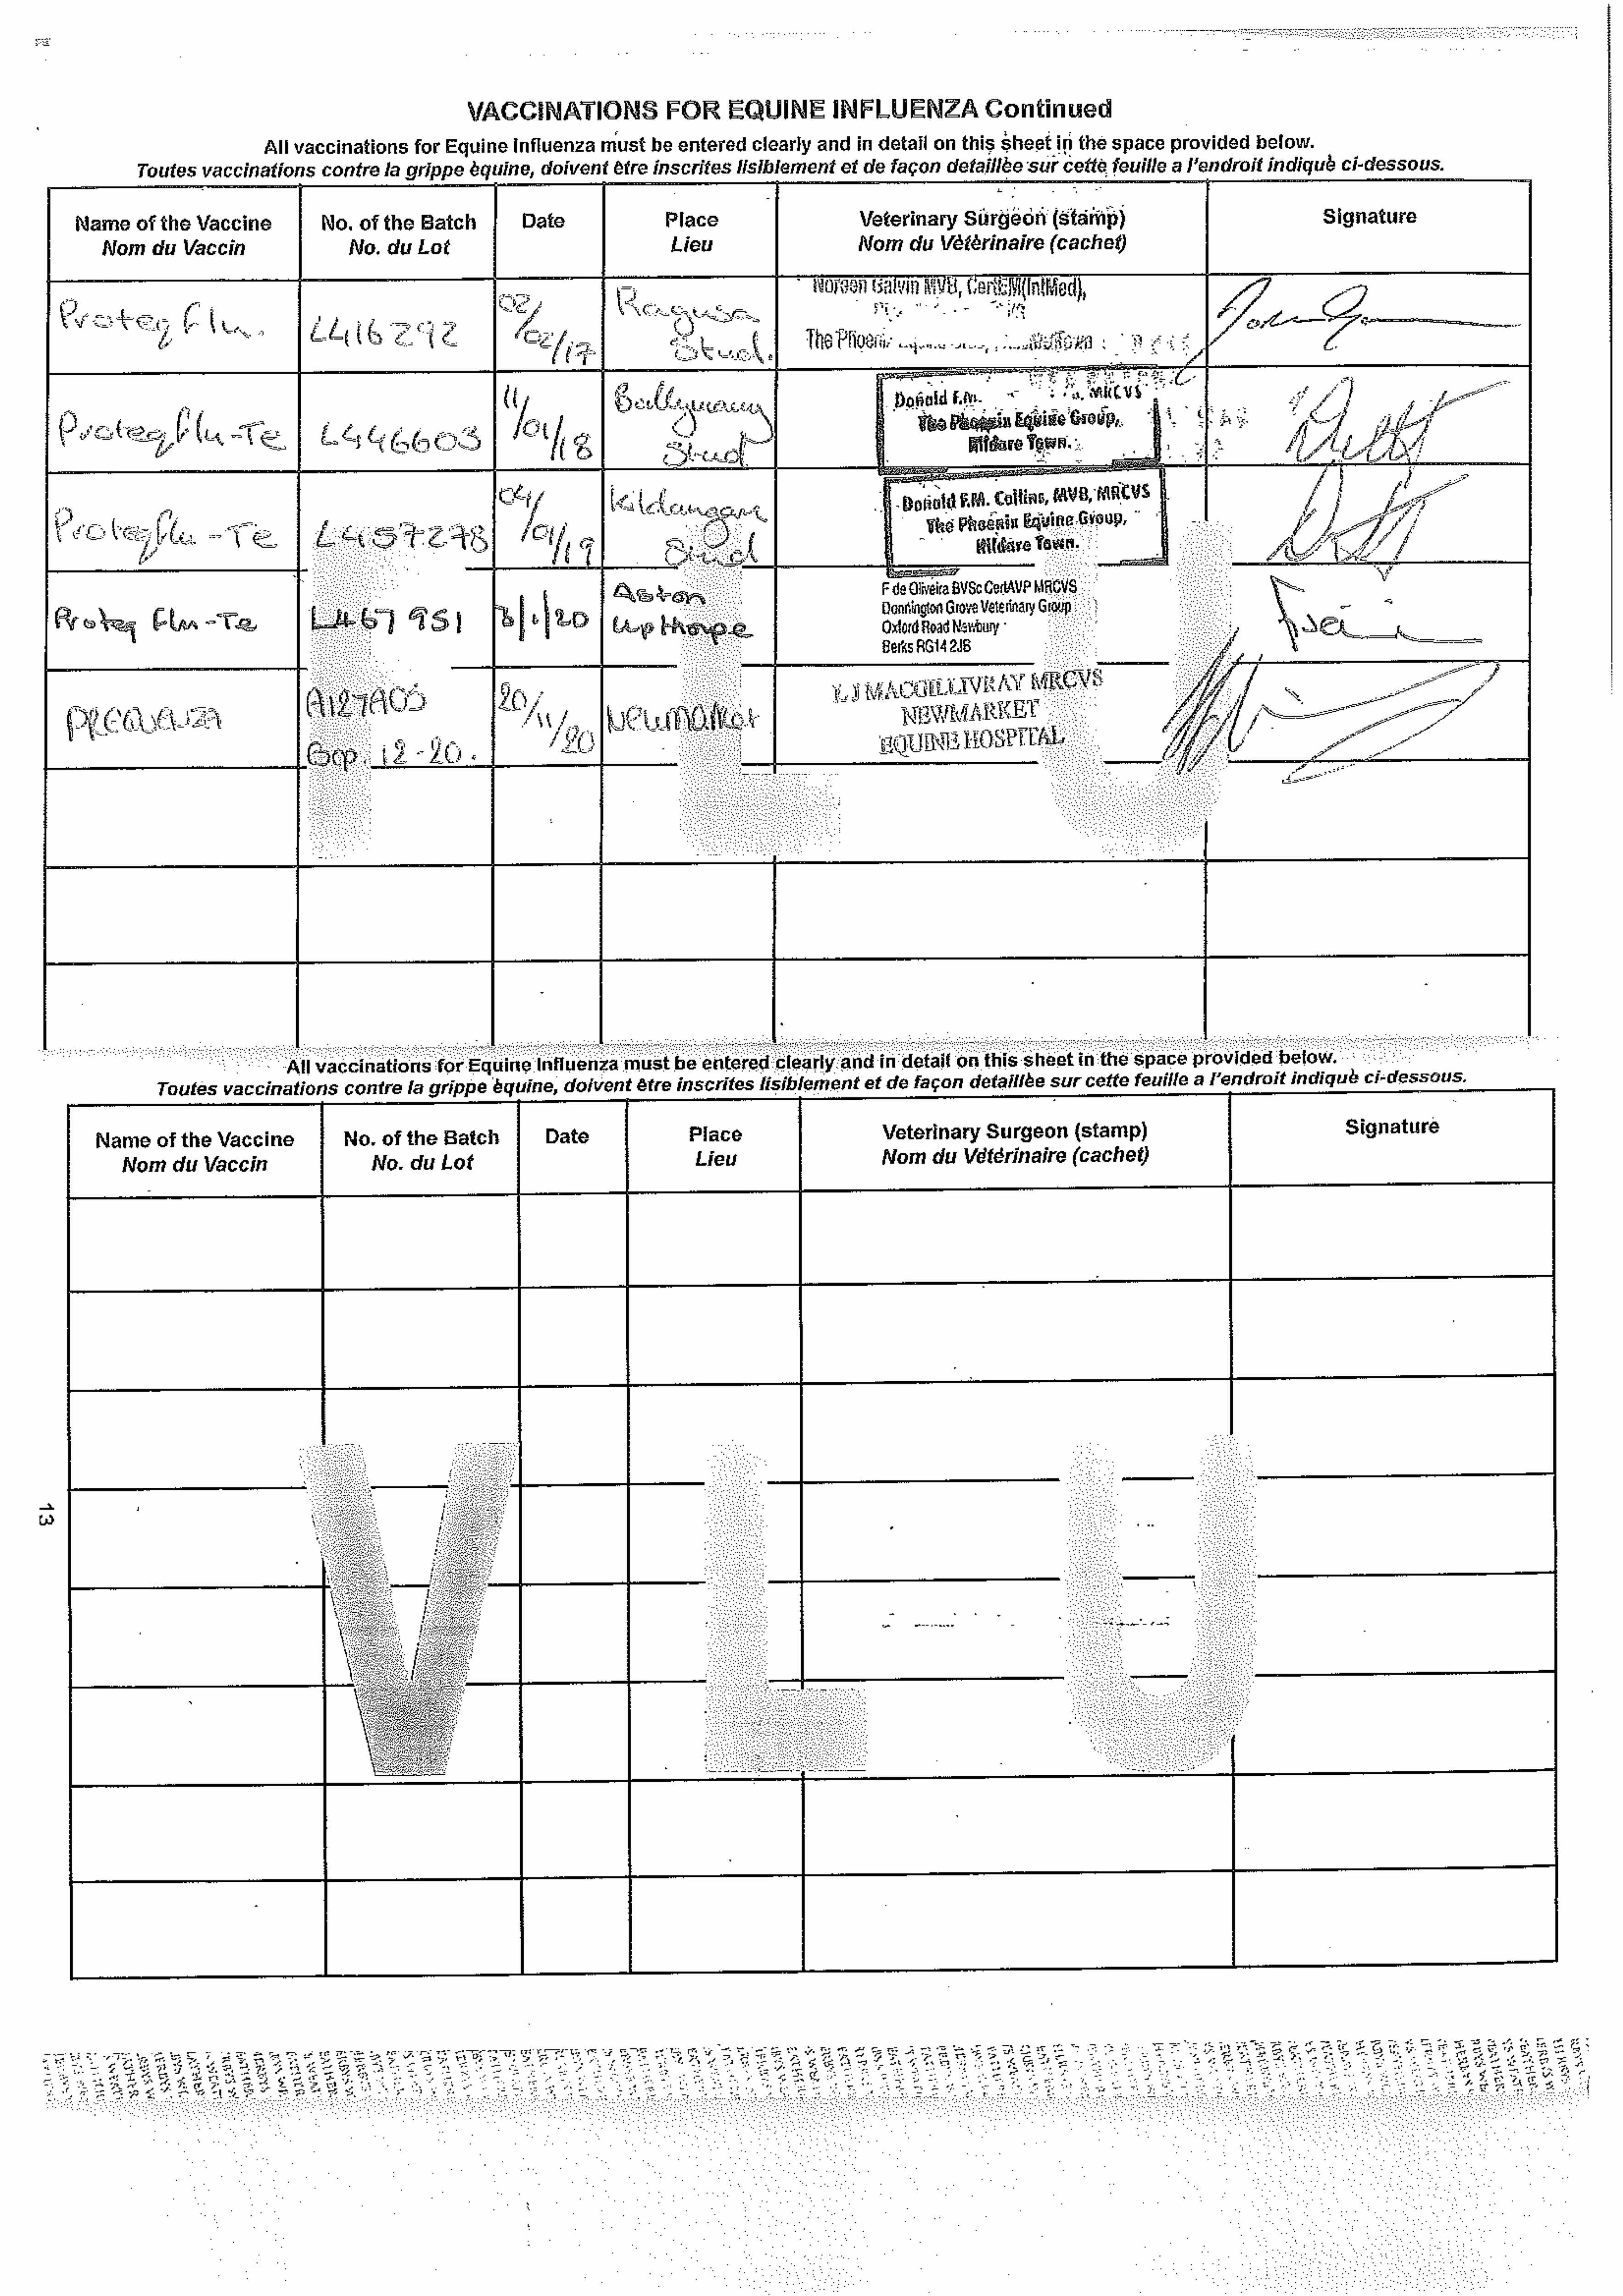 VACCINATIONS FOR EQUINE INFLUENZA Continued
All vaccinations for Equine Influenza must be entered clearly and in detail on this sheet in the space provided below.
Toutes vaccinations contre la grippe èquine, doivent être inscrites lisiblement et de façon detaillèe sur cette feuille a l'endroit indiquè ci-dessous.
Name of the Vaccine No. of the Batch Date Place Veterinary Surgeon (stamp) Signature
Nom du Vaccin No. du Lot Lieu Nom du Vètèrinaire (cachet)
Proteqflu. L416292 02/02/17 Ragusa Stud. Galvin MVB, CertEM(IntMed),
The Phoenix
Proteqflu-Te L446603 11/01/18 Ballymany Stud Donald F.M. MRCVS
The Phoenix Equine Group,
Kildare Town.
Proteqflu-Te L457278 04/01/19 Kildangan Stud Donald F.M. Collins, MVB, MRCVS
The Phoenix Equine Group,
Kildare Town.
Proteq Flu-Te L467951 3/1/20 Aston Upthorpe F de Oliveira BVSc CertAVP MRCVS
Donnington Grove Veterinary Group
Oxford Road Newbury
Berks RG14 2JB
PREQUENZA A127A05 20/11/20 Newmarket MACGILLIVRAY MRCVS
Exp. 12-20. NEWMARKET
EQUINE HOSPITAL
L U
All vaccinations for Equine Influenza must be entered clearly and in detail on this sheet in the space provided below.
Toutes vaccinations contre la grippe èquine, doivent être inscrites lisiblement et de façon detaillèe sur cette feuille a l'endroit indiquè ci-dessous.
Name of the Vaccine No. of the Batch Date Place Veterinary Surgeon (stamp) Signature
Nom du Vaccin No. du Lot Lieu Nom du Vétérinaire (cachet)
V L U
13